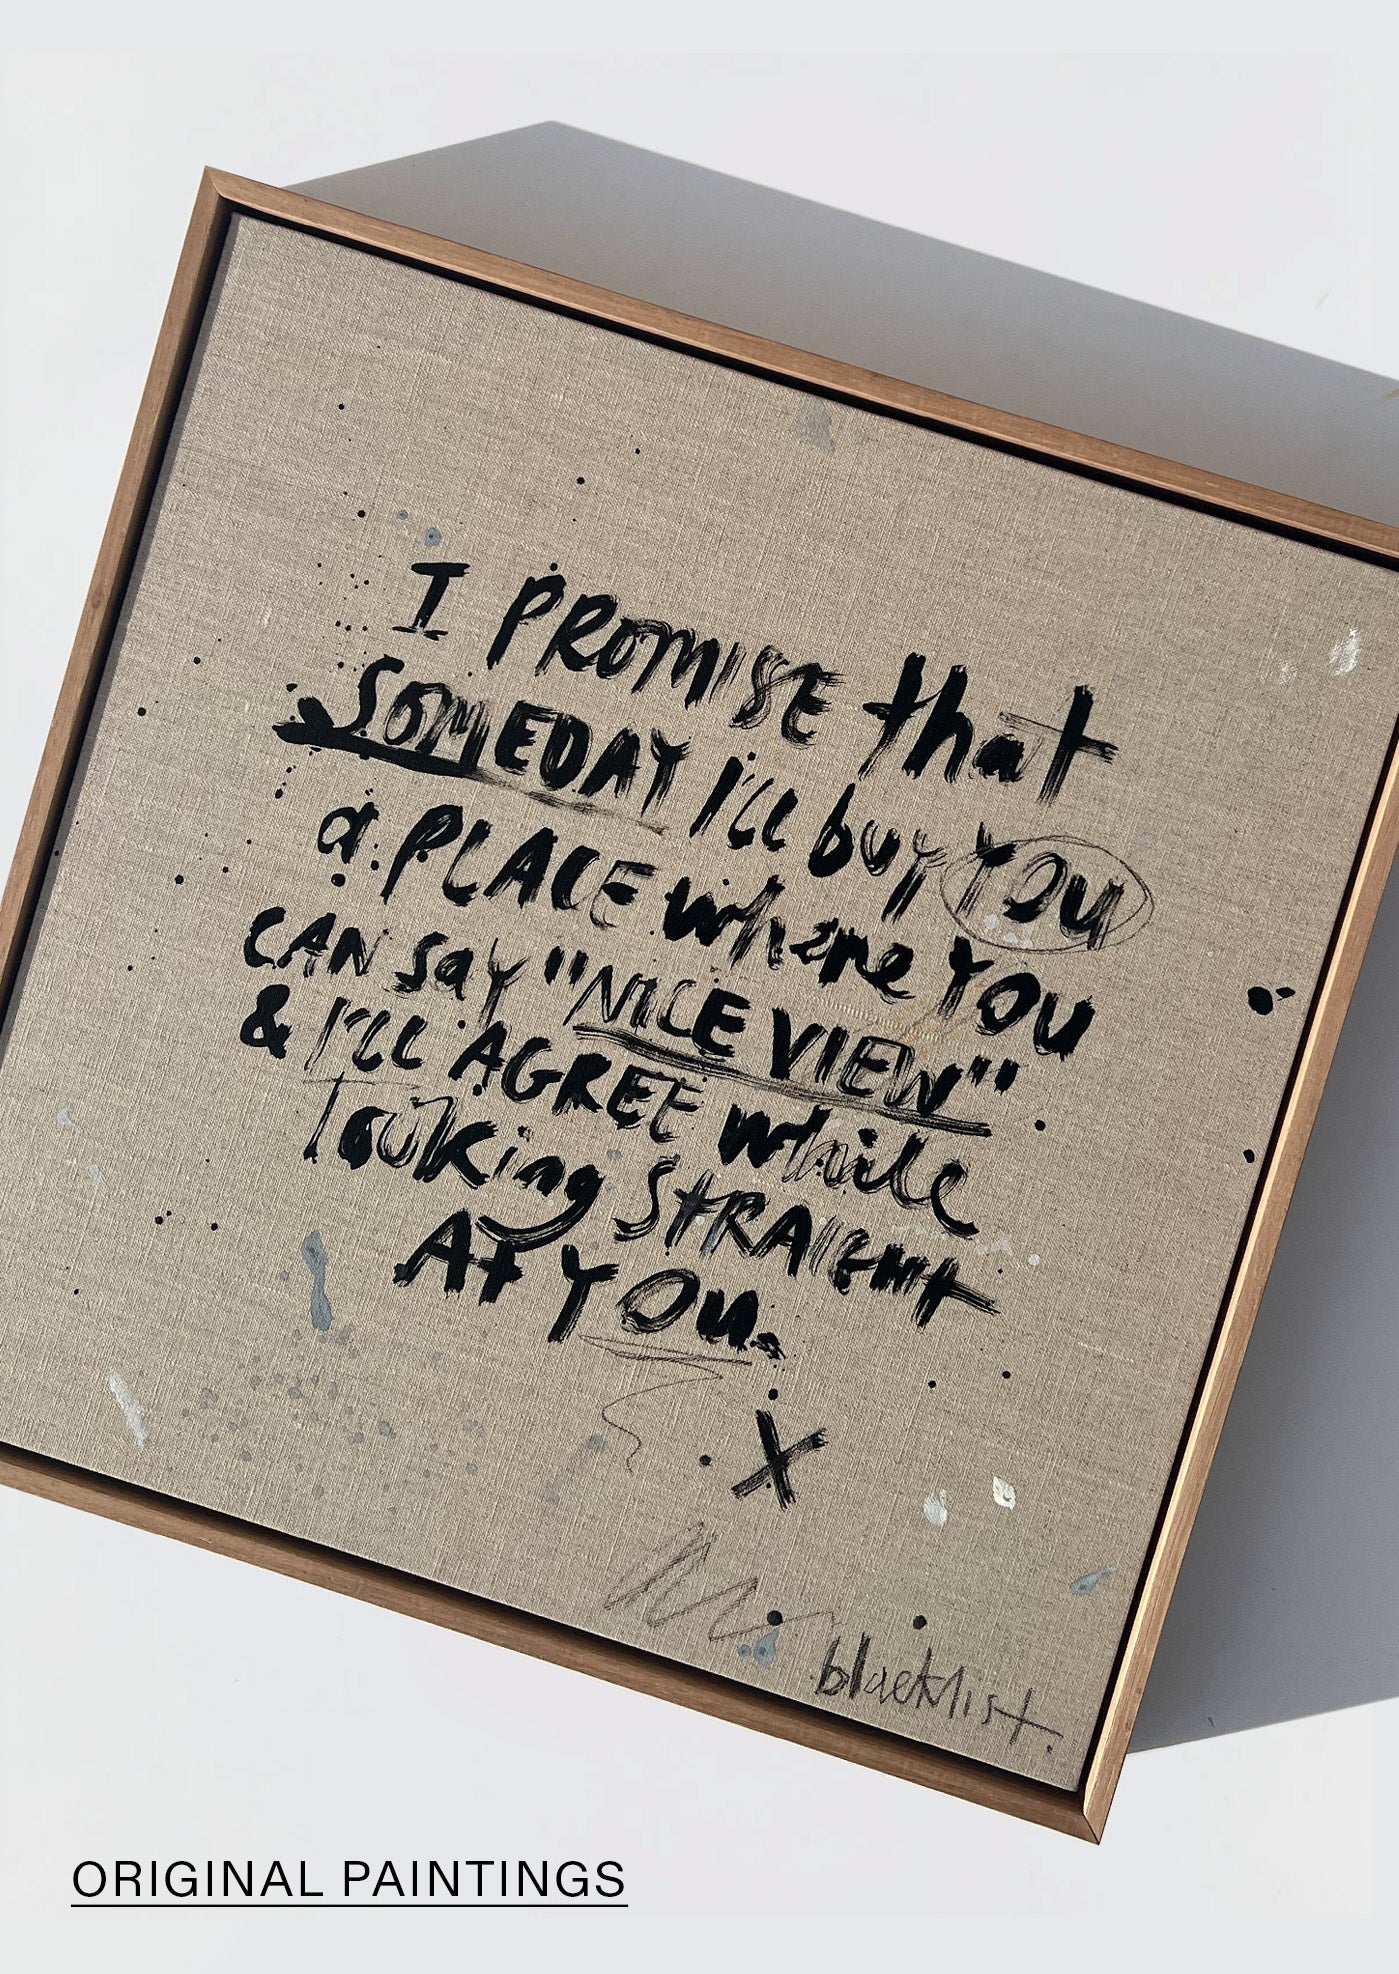 I PROMISE that
SOMEDAY I'll buy YOU
a PLACE where YOU
CAN say "NICE VIEW"
& I'll AGREE while
looking STRAIGHT
At YOU.
X
blacklist.
ORIGINAL PAINTINGS